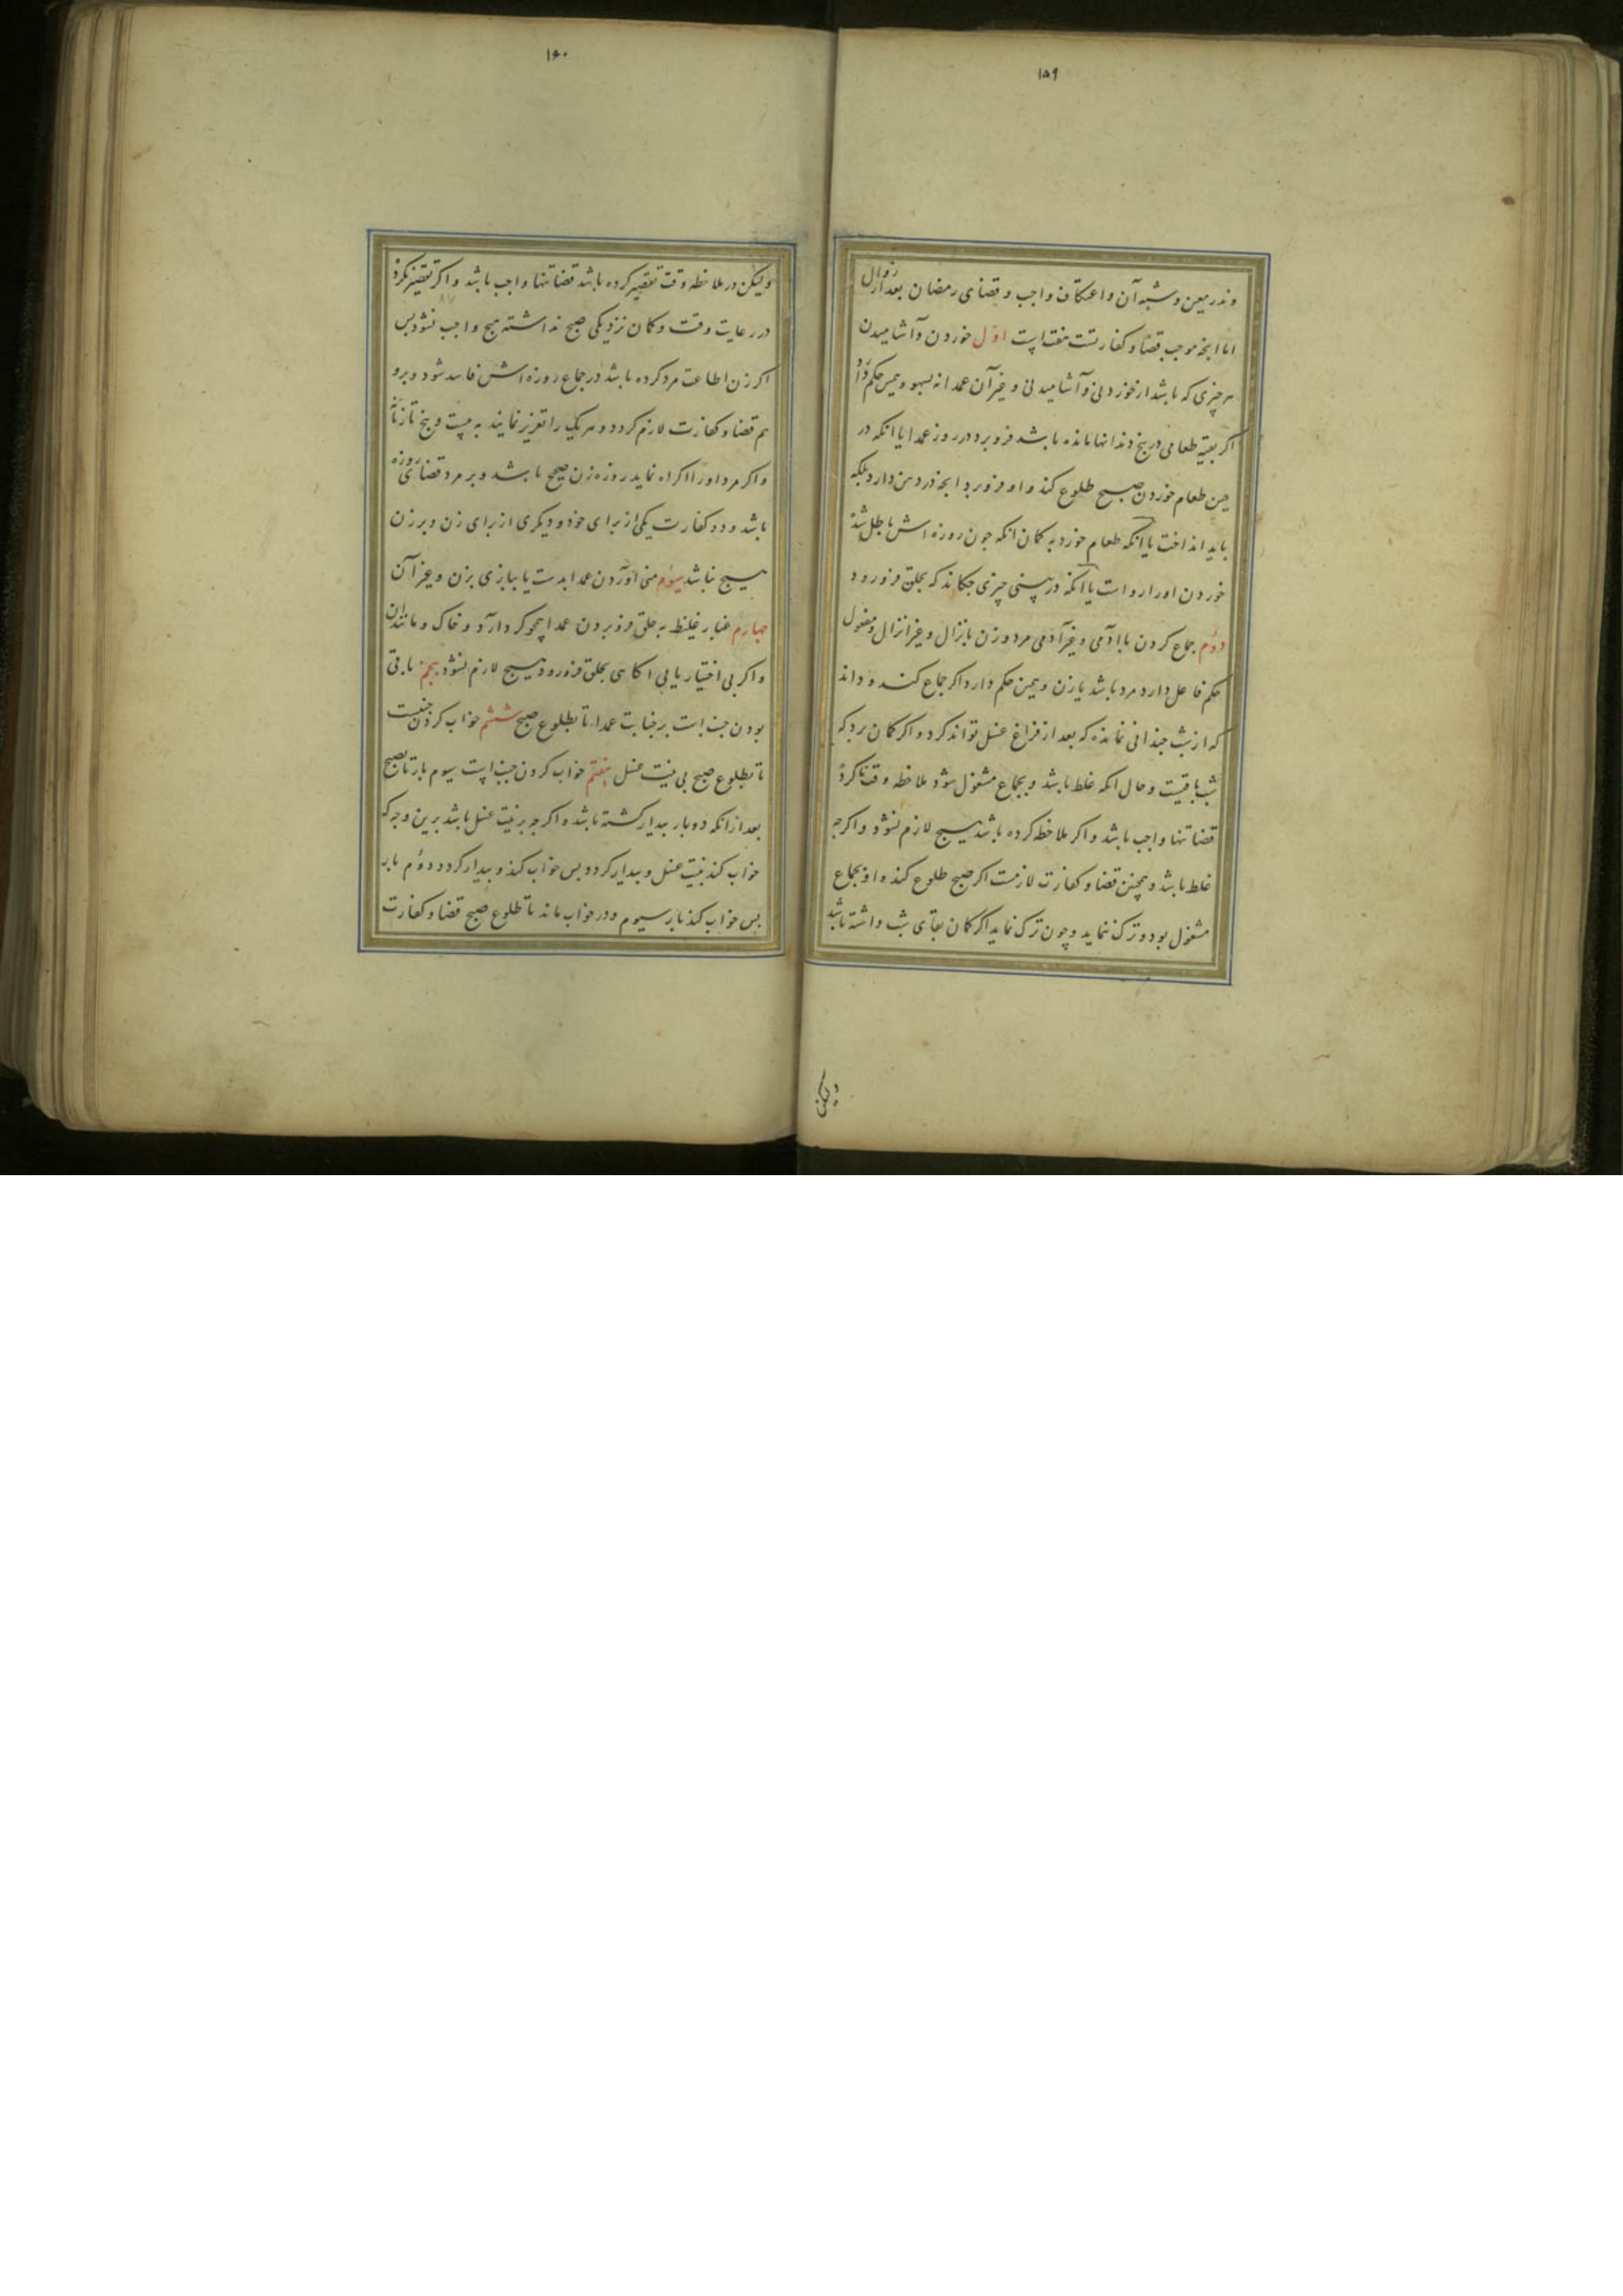 ۱۵۹
ونذر معین و شبه آن و اعتکاف واجب و قضای رمضان بعد از زوال
اما انجه موجب قضا و کفارتست هفت است اوّل خوردن و آشامیدن
هر چیزی که باشد از خوردنی و آشامیدنی و غیر آن عمدا نه بسهو و همین حکم دارد
اکر بقیه طعامی در بیخ دندانها مانده باشد فرو برد در روز عمدا یا انکه در
حین طعام خوردن صبح طلوع کند و او فرو برد انجه در دهن دارد بلکه
باید انداخت یا آنکه طعام خورد به کمان انکه چون روزه اش باطل شد
خوردن او را رواست یا آنکه در بینی چیزی چکاند که بحلق فرو رود
دوّم جماع کردن با آدمی و غیر آدمی مرد و زن بانزال و غیر انزال و مفعول
حکم فاعل دارد مرد باشد یا زن و همین حکم دارد اکر جماع کند و داند
که از شب چندانی نمانده که بعد از فراغ غسل تواند کرد و اکر کمان برد که
شب باقیست و حال انکه غلط باشد و بجماع مشغول شود ملاحظه وقت ناکرده
قضا تنها واجب باشد و اکر ملاحظه کرده باشد هیچ لازم نشود و اکرچه
غلط باشد و همچنین قضا و کفارت لازمست اکر صبح طلوع کند و او بجماع
مشغول بود و ترک ننماید و چون ترک نماید اکر کمان بقای شب داشته باشد
ولیکن
۱۶۰
ولیکن در ملاحظه وقت تقصیر کرده باشد قضا تنها واجب باشد و اکر تقصیر نکرده
در رعایت وقت و کمان نزدیکی صبح نداشته هیچ واجب نشود پس
اکر زن اطاعت مرد کرده باشد در جماع روزه اش فاسد شود و برو
هم قضا و کفارت لازم کردد و هر یک را تعزیر نمایند به بیست و پنج تازیانه
و اکر مرد او را اکراه نماید روزه زن صحیح باشد و بر مرد قضای روزه
باشد و دو کفارت یکی از برای خود و دیکری از برای زن و بر زن
هیچ نباشد سوّم منی آوردن عمدا بدست یا ببازی بزن و غیر آن
چهارم غبار غلیظ به حلق فرو بردن عمدا همچو کرد آرد و خاک و مانند آن
و اکر بی اختیار یا بی آکاهی بحلق فرو رود هیچ لازم نشود پنجم باقی
بودن جنب است بر جنابت عمدا تا بطلوع صبح ششم خواب کردن جنبست
تا بطلوع صبح بی نیت غسل هفتم خواب کردن جنب است سیوم بار تا بصبح
بعد از انکه دو بار بیدار کشته باشد و اکرچه بر نیت غسل باشد برین وجه که
خواب کند بنیت غسل و بیدار کردد پس خواب کند و بیدار کردد دوّم بار
پس خواب کند بار سیوم و در خواب ماند تا طلوع صبح قضا و کفارت